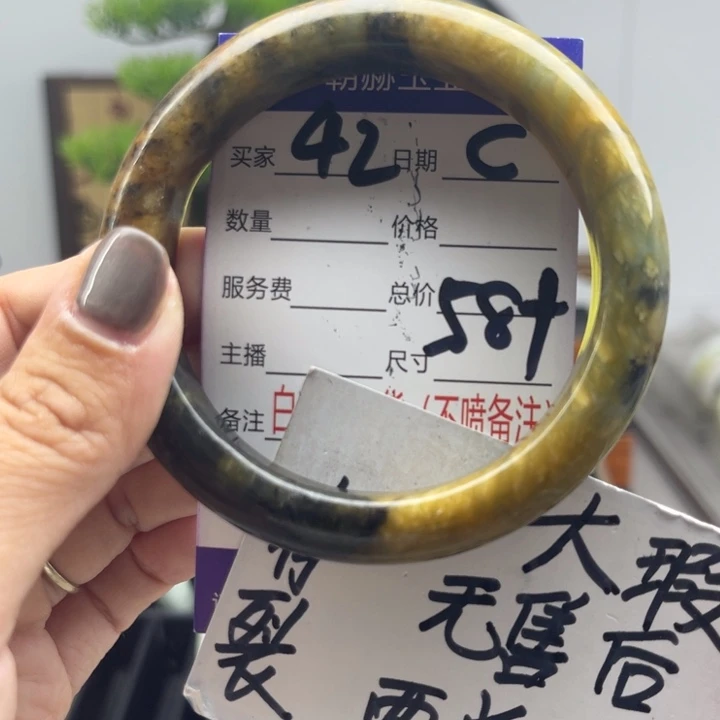 买家 42 日期 C
数量 价格
服务费 总价
主播 尺寸 58+
备注 白 (不喷备注
大瑕
有裂 无售后